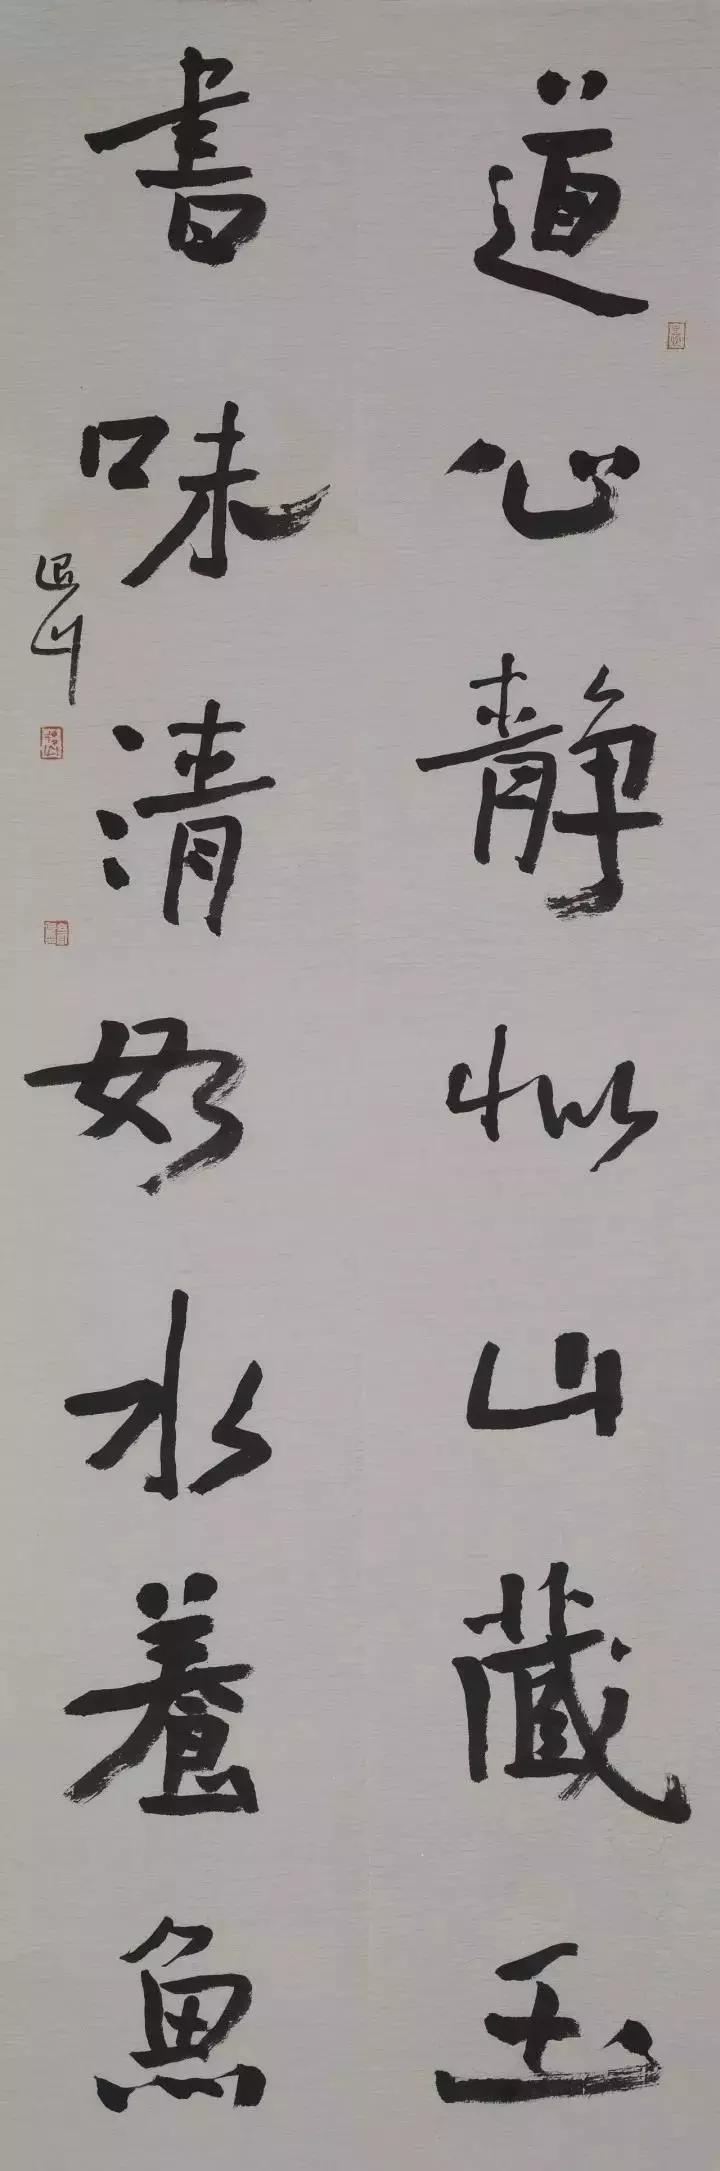 道心静似山藏玉
書味清如水養魚